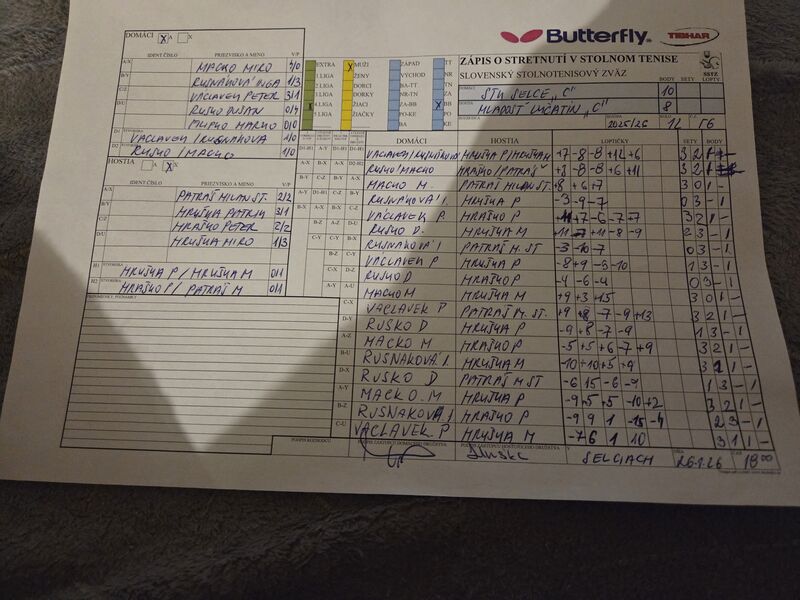 Butterfly
TIBHAR
DOMÁCI X A X
IDENT ČÍSLO PRIEZVISKO A MENO V/P
A/X MACKO MIRO 4/0
B/Y RUSNÁKOVÁ INGA 1/3
C/Z VACLAVEK PETER 3/1
D/U RUSKO DUŠAN 0/4
MACKO 0/0
D1 VACLAVEK / RUSNAKOVA 1/0
D2 RUSKO / MACKO 1/0
HOSTIA A X X
IDENT ČÍSLO PRIEZVISKO A MENO V/P
A/X PATRÁŠ MILAN ST. 2/2
B/Y HRUŠKA PATRIK 3/1
C/Z HRAŠKO PETER 2/2
D/U HRUŠKA MIRO 1/3
H1 ŠTVORHRA HRUŠKA P / HRUŠKA M 0/1
H2 ŠTVORHRA HRAŠKO P / PATRÁŠ M 0/1
EXTRA X MUŽI ZÁPAD TT
1.LIGA ŽENY VÝCHOD NR
2.LIGA DORCI BA-TT TN
3.LIGA DORKY NR-TN ZA
X 4.LIGA ŽIACI ZA-BB X BB
5.LIGA ŽIAČKY PO-KE PO
BA KE
ZÁPIS O STRETNUTÍ V STOLNOM TENISE
SLOVENSKÝ STOLNOTENISOVÝ ZVÄZ
SSTZ
BODY SETY LOPTY
DOMÁCI STK SELCE "C" 10
HOSTIA MLADOSŤ LUČATÍN "C" 8
SEZÓNA 2025/26 KOLO 12
DOMÁCI HOSTIA LOPTIČKY SETY BODY
VACLAVEK / RUSNÁKOVÁ HRUŠKA P / HRUŠKA M +7 -8 -8 +12 +6 3 2 1 -
RUSKO / MACKO HRAŠKO / PATRÁŠ +8 -8 -8 +6 +11 3 2 1
MACKO M PATRÁŠ MILAN ST. +8 +6 +7 3 0 1 -
RUSNÁKOVÁ I. HRUŠKA P -3 -9 -7 0 3 - 1
VACLAVEK P. HRAŠKO P +7 -6 -7 -7 3 2 1 -
RUSKO D. HRUŠKA M +11 -7 +11 -8 -9 2 3 - 1
RUSNAKOVÁ I PATRÁŠ M. ST -3 -10 -7 0 3 - 1
VACLAVEK P HRUŠKA P -8 +9 -9 -10 1 3 - 1
RUSKO D HRAŠKO P -4 -6 -4 0 3 - 1
MACKO M HRUŠKA M +9 +3 +15 3 0 1 -
VACLAVEK P PATRÁŠ M. ST. +9 +8 -7 -9 +13 3 2 1 -
RUSKO D HRUŠKA P -9 +8 -7 -9 1 3 - 1
MACKO M HRAŠKO P -5 +5 +6 -7 +9 3 2 1 -
RUSNAKOVÁ I HRUŠKA M -10 +10 +5 +9 3 1 1 -
RUSKO D PATRÁŠ M. ST -6 15 -6 -9 1 3 - 1
MACKO. M HRUŠKA P -9 5 5 -10 +2 3 2 1 -
RUSNAKOVÁ I HRAŠKO P -9 9 1 -15 -4 2 3 - 1
VACLAVEK P HRUŠKA M -7 6 1 10 3 1 1 -
PRIPOMIENKY, POZNÁMKY
PODPIS ROZHODCU
V SELCIACH 26.1.26 18 00